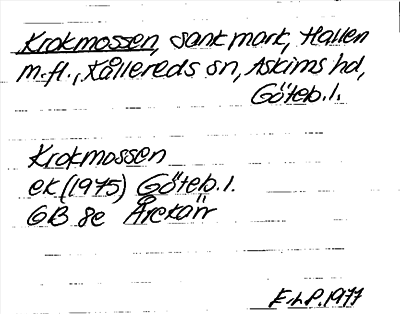 Krokmossen, sank mark, Hallen
m.fl., Kållereds sn, Askims hd,
Göteb. l.
Krokmossen
ek (1975) Göteb. l.
6B 8e Årekärr
E.h.P. 1977